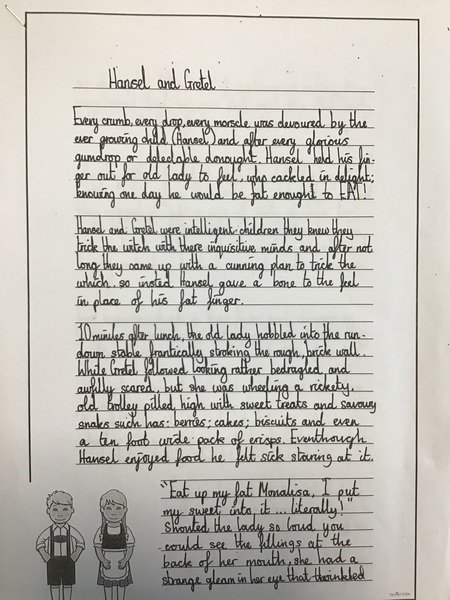 Hansel and Gretel
Every crumb, every drop, every morscle was devoured by the
ever growing child (Hansel) and after every glorious
gumdrop or delectable donought. Hansel held his fin-
ger out for old lady to feel, who cackled in delight;
knowing one day he would be fat enought to EAT!
Hansel and Gretel were intelligent children they knew they
trick the witch with there inquisitive minds and after not
long they came up with a cunning plan to trick the
which. so insted Hansel gave a bone to the feel
in place of his fat finger.
10 minutes after lunch, the old lady hobbled into the run-
down stable frantically stroking the rough, brick wall.
While Gretel followed looking rather bedragled, and
awfully scared, but she was wheeling a rickety,
old trolley pilled high with sweet treats and savoury
snaks such has: berries; cakes; biscuits and even
a ten foot wide pack of crisps. Eventhough
Hansel enjoyed food he felt sick staring at it.
"Eat up my fat Monalisa, I put
my sweet into it ... literally!"
Shouted the lady so loud you
could see the fillings at the
back of her mouth, she had a
strange gleam in her eye that thwinkled